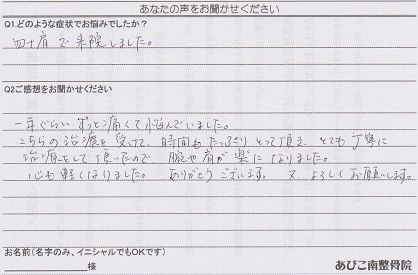 あなたの声をお聞かせください
Q1.どのような症状でお悩みでしたか？
四十肩で来院しました。
Q2ご感想をお聞かせください
一年ぐらいずっと痛くて悩んでいました。
こちらの治療を受けて、時間もたっぷりとって頂き、とても丁寧に
治療をして頂いたので腕や肩が楽になりました。
心も軽くなりました。ありがとうございます。又よろしくお願いします。
お名前（名字のみ、イニシャルでもOKです）
様
あびこ南整骨院